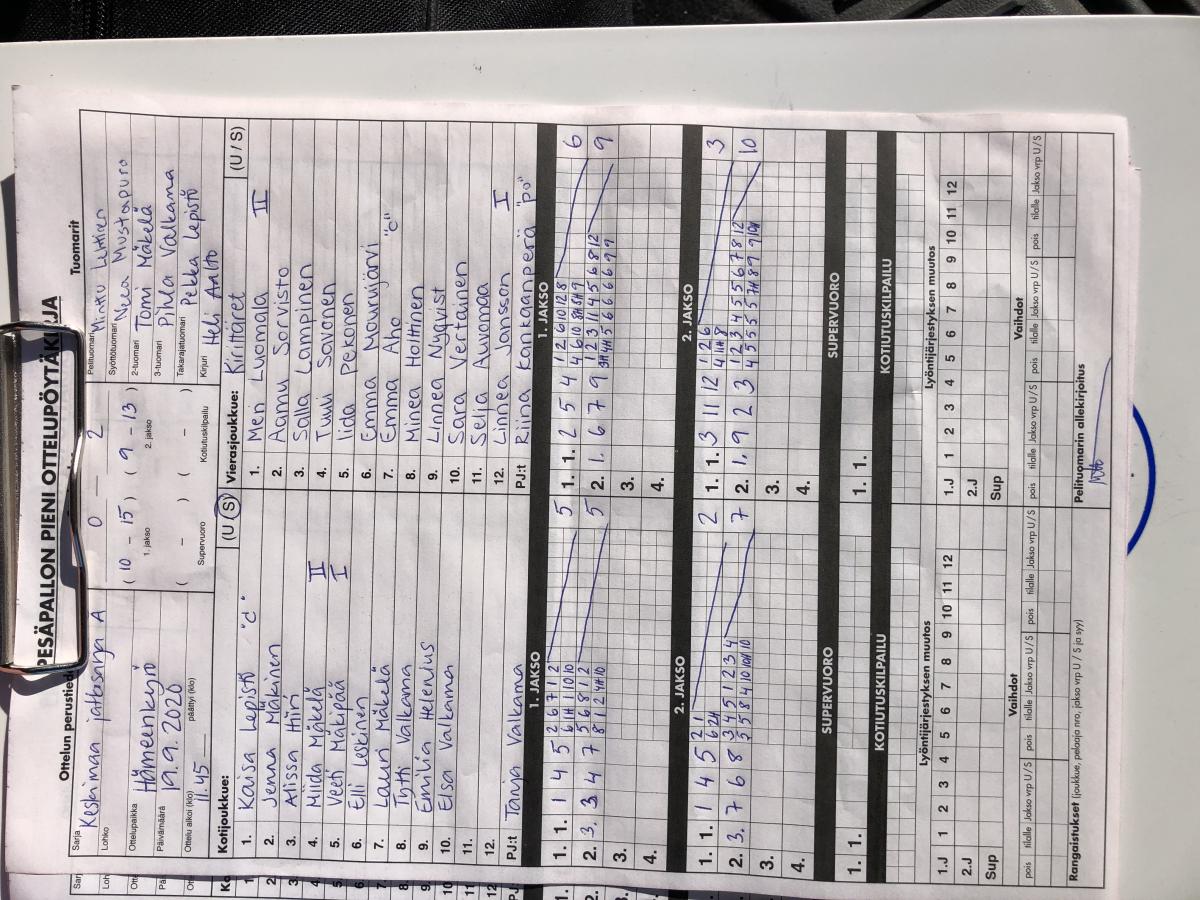 PESÄPALLON PIENI OTTELUPÖYTÄKIRJA
Ottelun perustiedot
Sarja Keskimaa jatkosarja A
Lohko 0 2
Ottelupaikka Hämeenkyrö
Päivämäärä 19.9.2020
Ottelu alkoi (klo) 11.45 päättyi (klo)
( 10 - 15 ) ( 9 - 13 )
1. jakso 2. jakso
( - ) ( - )
Supervuoro Kotiutuskilpailu
Tuomarit
Pelituomari Minttu
Syöttötuomari Mustapuro
2-tuomari Tomi Mäkelä
3-tuomari Pihla Valkama
Takarajatuomari Pekka Lepistö
Kirjuri Heli Aalto
Kotijoukkue: (U / S)
1. Kaisa Lepistö "c"
2. Jenna Mäkinen
3. Alissa Hiiri
4. Miida Mäkelä II
5. Veeti Mäkipää I
6. Elli Leskinen
7. Lauri Mäkelä
8. Tytti Valkama
9. Emilia Helenius
10. Elsa Valkama
11.
12.
PJ:t Tanja Valkama
Vierasjoukkue: Kirittäret (U / S)
1. Meri Luomala II
2. Aamu Sorvisto
3. Salla Lampinen
4. Tuuli Savonen
5. Iida Pekonen
6. Emma Mourujärvi
7. Emma Aho "c"
8. Minea Holttinen
9. Linnea Nyqvist
10. Sara Vertainen
11. Selja Auvomaa
12. Linnea Jansson I
PJ:t Riina Kankaanperä "po"
1. JAKSO
1. 1. 1 4 5 2 6 7 1 2 5
2. 3. 3 4 7 5 6 8 1 2 5
3.
4.
1. JAKSO
1. 1. 2 5 4 1 2 6 10 12 8 6
2. 1. 6 7 9 1 2 3 11 4 5 6 8 12 9
3.
4.
2. JAKSO
1. 1. 1 4 5 2 1 2
2. 3. 7 6 8 3 4 5 1 2 3 4 7
3.
4.
2. JAKSO
1. 1. 3 11 12 1 2 6 3
2. 1. 9 2 3 1 2 3 4 5 5 6 7 8 12 10
3.
4.
SUPERVUORO
1. 1.
SUPERVUORO
1. 1.
KOTIUTUSKILPAILU
KOTIUTUSKILPAILU
Lyöntijärjestyksen muutos
1.J 1 2 3 4 5 6 7 8 9 10 11 12
2.J
Sup
Lyöntijärjestyksen muutos
1.J 1 2 3 4 5 6 7 8 9 10 11 12
2.J
Sup
Vaihdot
pois tilalle Jakso vrp U / S pois tilalle Jakso vrp U / S pois tilalle Jakso vrp U / S
Vaihdot
pois tilalle Jakso vrp U / S pois tilalle Jakso vrp U / S pois tilalle Jakso vrp U / S
Rangaistukset (joukkue, pelaaja nro, jakso vrp U / S ja syy)
Pelituomarin allekirjoitus